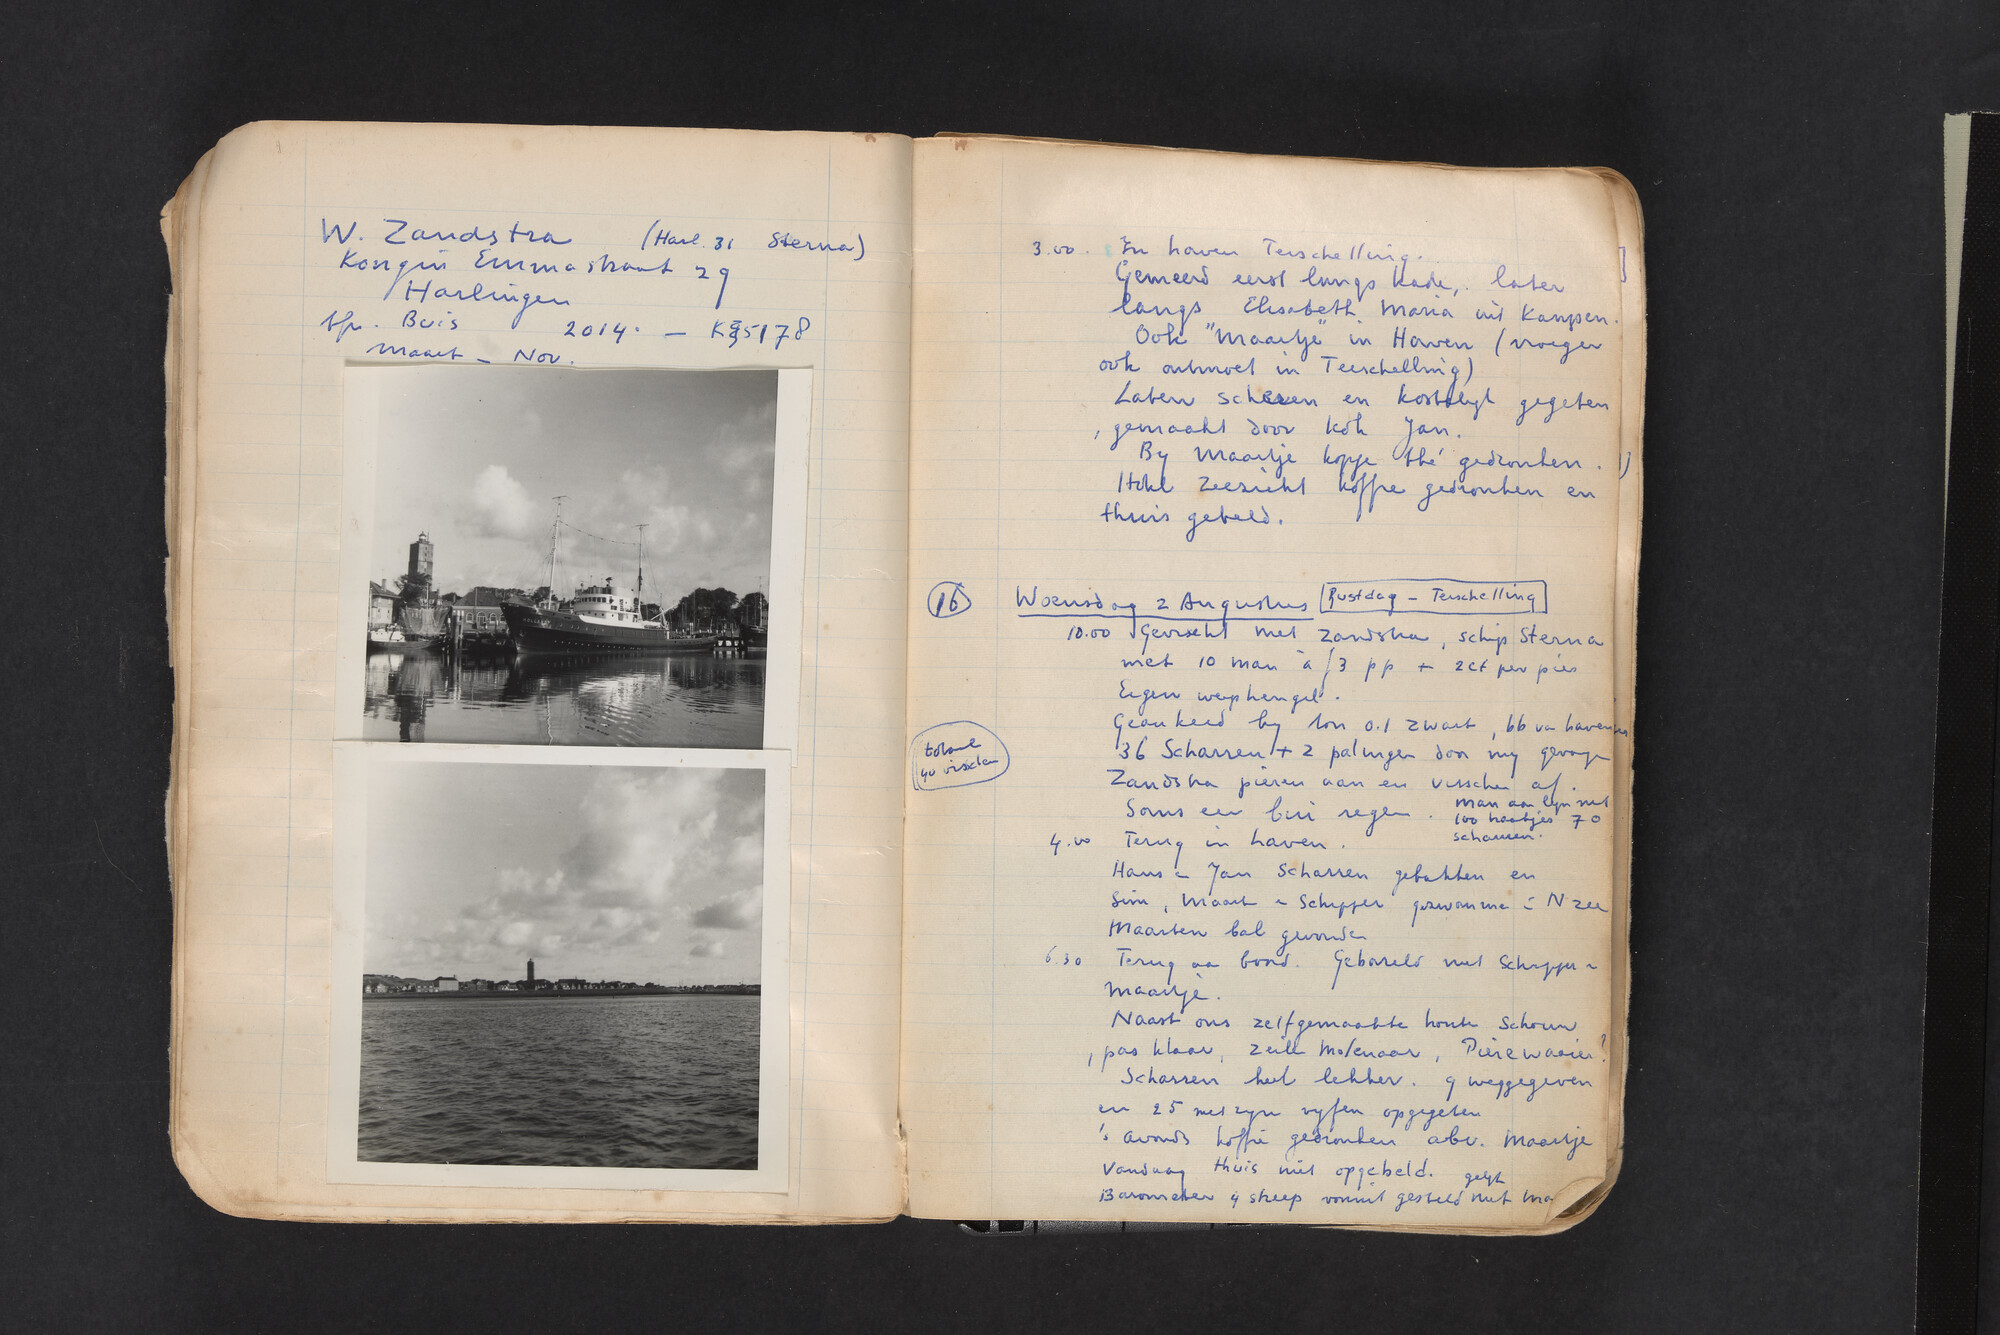 W. Zandstra (Harl. 31 Sterna)
Kongin Emmastraat 29
Harlingen
tfn. Buis 2014 — K 5178
maart — Nov.
3.00. In haven Terschelling.
Gemeerd eerst langs kade, later
langs Elisabeth Maria uit Kampen.
Ook "Maartje" in Haven (vroeger
ook ontmoet in Terschelling)
Laten scheren en kostelyk gegeten
, gemaakt door kok Jan.
By Maartje kopje thé gedronken.
Hotel Zeezicht koffie gedronken en
thuis gebeld.
16 Woensdag 2 Augustus Rustdag – Terschelling
10.00 Gevischt met Zandstra, schip Sterna
met 10 man à ƒ3 pp + 2ct per pier
Eigen werphengel.
Geankerd by ton 0.1 zwart, bb van haven
36 Scharren + 2 palingen door my gevangen
totaal
40 visschen
Zandstra pieren aan en visschen af.
Soms een bui regen. man aan lyn met
100 haakjes 70
scharren.
4.00 Terug in haven.
Hans & Jan Scharren gebakken en
Sim, Maart & Schipper gezwommen in N zee
Maarten bal gevonden
6.30 Terug aan boord. Geborreld met Schipper &
Maartje.
Naast ons zelfgemaakte houten Schouw
, pas klaar, zeile Molenaar, Pierewaaier?
Scharren heel lekker. 9 weggegeven
en 25 met zyn vyfen opgegeten
's avonds koffie gedronken abv. Maartje
Vandaag thuis niet opgebeld.
gelyk
Barometer 9 streep vooruit gesteld met Ma